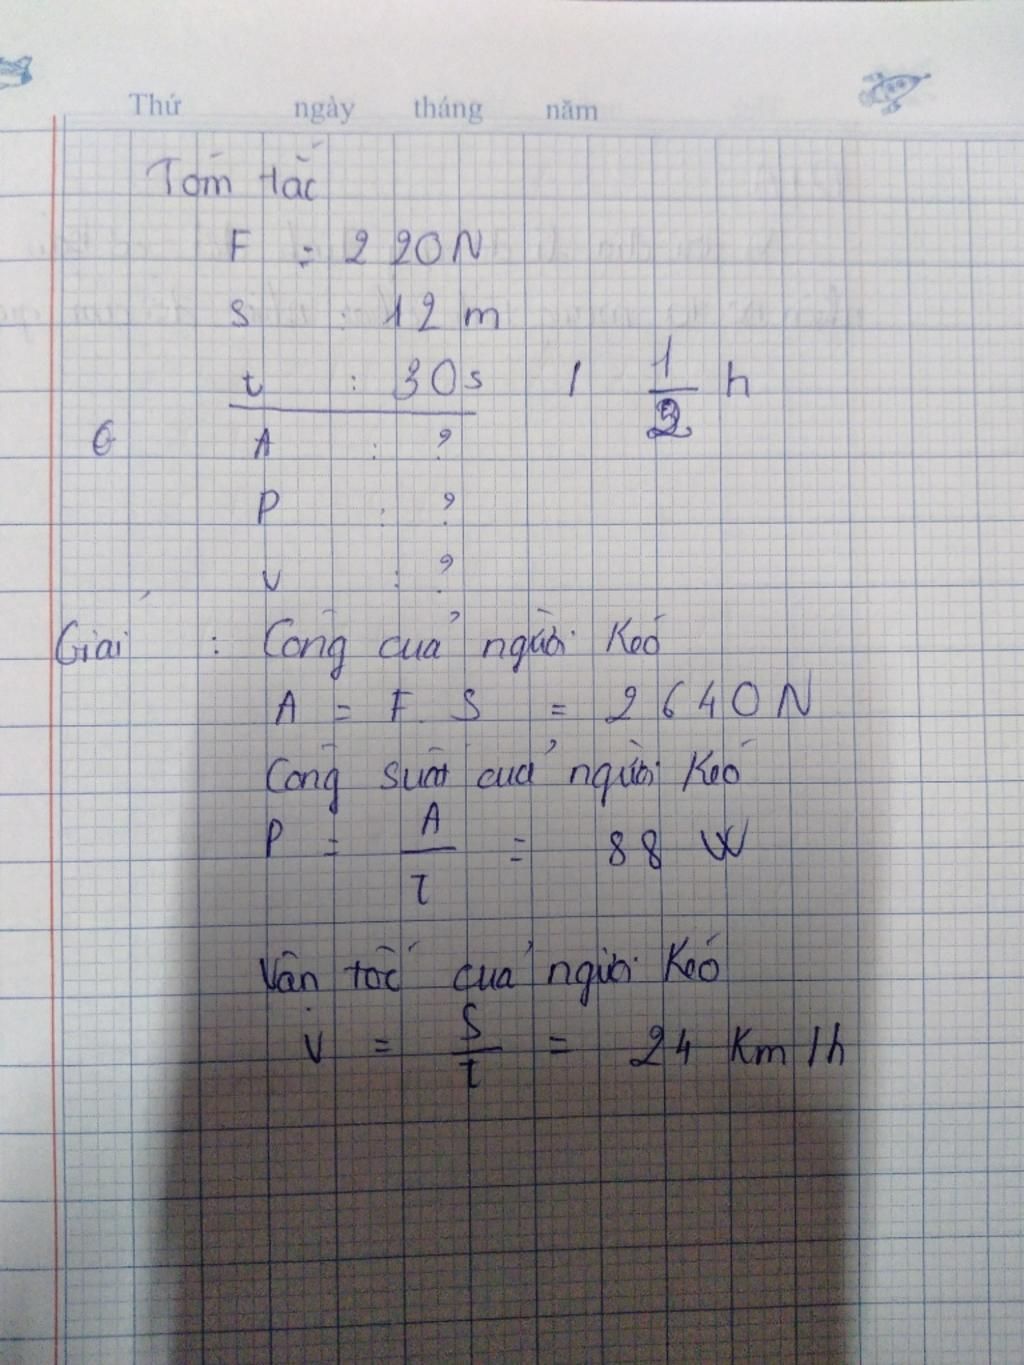 Thứ ngày tháng năm
Tóm tắc
F = 220N
S : 12 m
t : 30s / 1/2 h
A : ?
P : ?
v : ?
Giải : Công của người Kéo
A = F. S = 2640N
Công suất của người Kéo
P = A/t = 88 W
Vân tốc của người Kéo
v = S/t = 24 Km/h